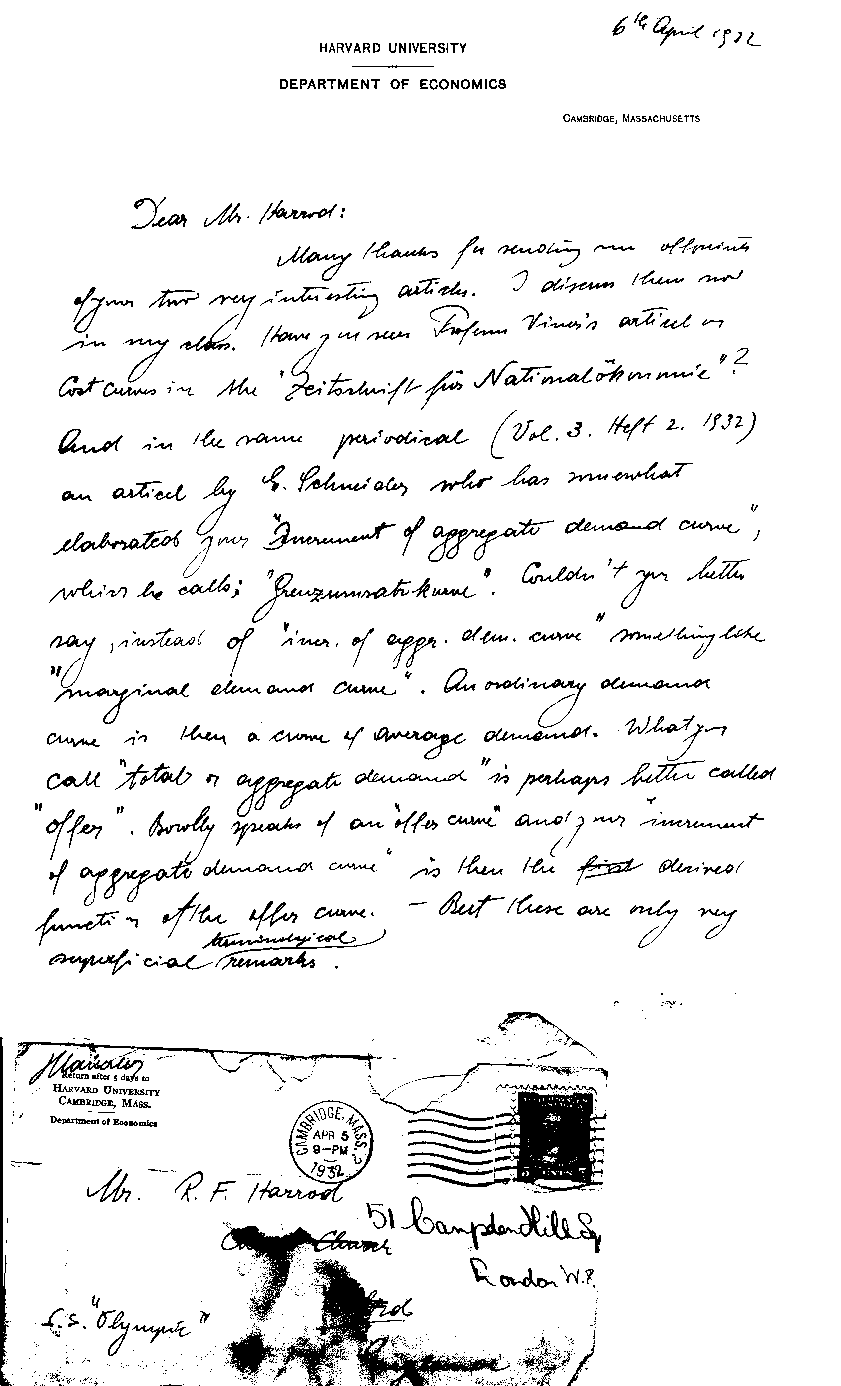 6th April 1932
HARVARD UNIVERSITY
DEPARTMENT OF ECONOMICS
CAMBRIDGE, MASSACHUSETTS
Dear Mr. Harrod:
Many thanks for sending me offprints
of your two very interesting articles. I discuss them now
in my class. Have you seen Professor Viner's articel on
Cost curves in the "Zeitschrift für Nationalökonomie"?
And in the same periodical (Vol. 3. Heft 2. 1932)
an articel by E. Schneider who has somewhat
elaborated your "Increment of aggregate demand curve",
which he calls: "Grenzumsatzkurve". Couldn't you better
say, instead of "incr. of aggr. dem. curve" something like
"marginal demand curve". An ordinary demand
curve is then a curve of average demand. What you
call "total or aggregate demand" is perhaps better called
"offer". Bowlly speaks of an "offer curve" and your "increment
of aggregate demand curve" is then the first derived
function of the offer curve. – But these are only very
superficial terminological remarks.
Return after 5 days to
HARVARD UNIVERSITY
CAMBRIDGE, MASS.
Department of Economics
CAMBRIDGE, MASS. 2
APR 5
9-PM
1932
Mr. R. F. Harrod
51 Campden Hill Sq
Church
London W.8.
S.S. "Olympic"
England